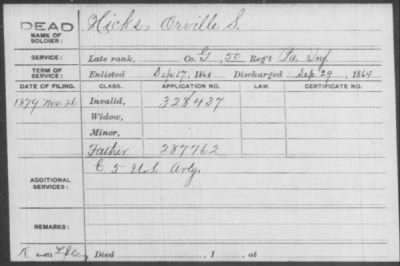 DEAD
NAME OF SOLDIER: Hicks, Orville S.
SERVICE: Late rank, Co. G, 50 Reg't Pa. Inf.
TERM OF SERVICE: Enlisted Sep 17, 1861 Discharged Sep 29, 1864
DATE OF FILING. CLASS. APPLICATION NO. LAW. CERTIFICATE NO.
1879 Nov. 28 Invalid, 328437
Widow,
Minor,
Father 287762
ADDITIONAL SERVICES: C 5 U.S. Arty.
REMARKS:
Died , 1 , at